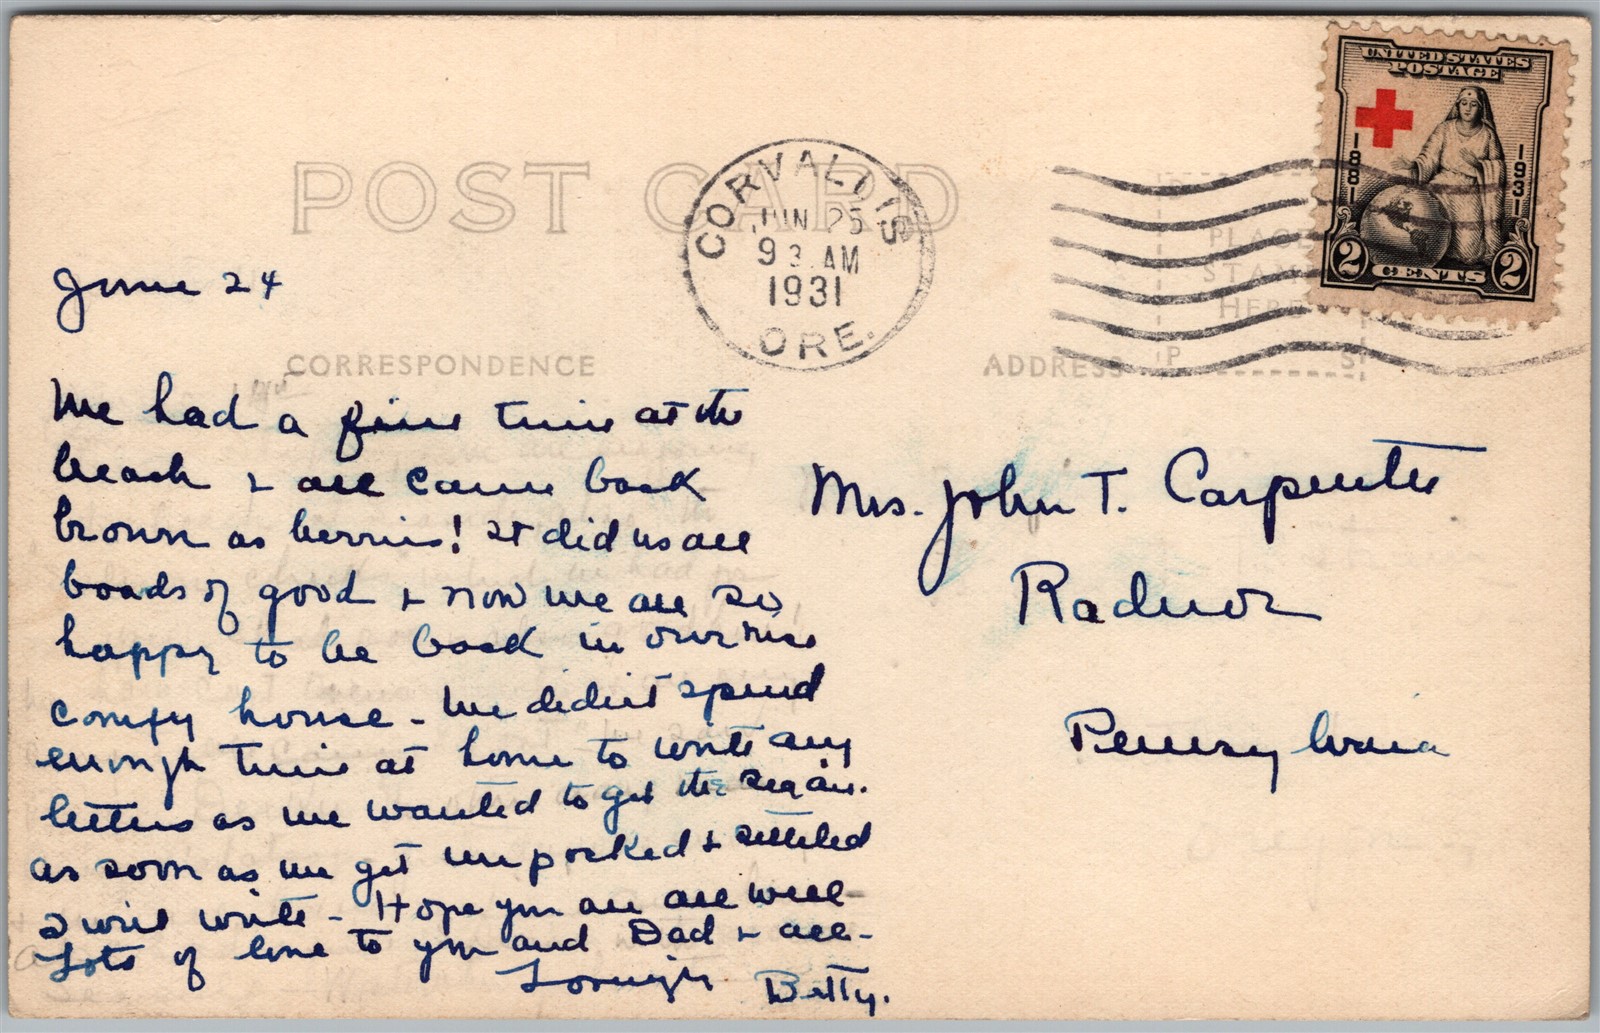 UNITED STATES
POSTAGE
1881
1931
2 CENTS 2
POST CARD
CORVALLIS
JUN 25
9 3 AM
1931
ORE.
PLACE
STAMP
HERE
June 24
CORRESPONDENCE
ADDRESS
We had a fine time at the
beach & all came back
brown as berries! It did us all
loads of good & now we are so
happy to be back in our nice
comfy house - We didn't spend
enough time at home to write any
letters as we wanted to get the
as soon as we get unpacked & settled
I will write - Hope you are all well -
Lots of love to you and Dad & all -
Lovingly Betty.
Mrs. John T. Carpenter
Radnor
Pennsylvania